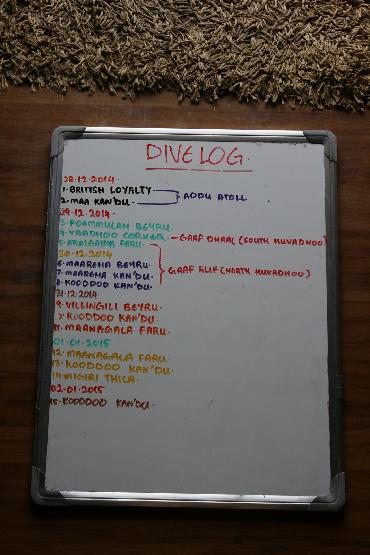 DIVE LOG.
28.12.2014
1. BRITISH LOYALTY
2. MAA KAN'DU.
ADDU ATOLL
29.12.2014
3. FOAMMULAH BEYRU.
4. VAADHOO CORNER.
GAAF DHAAL (SOUTH HUVADHOO)
5. ARAIGATHA FARU.
30.12.2014
6. MAAREHA BEYRU.
7. MAAREHA KAN'DU.
8. KOODDOO KAN'DU.
GAAF ALIF (NORTH HUVADHOO)
31.12.2014
9. VILLINGILI BEYRU.
KOODDOO KAN'DU.
11. MAANAGALA FARU.
01.01.2015
12. MAANAGALA FARU.
13. KOODDOO KAN'DU.
14. MIGIRI THILA.
02.01.2015
15. KOODDOO KAN'DU.